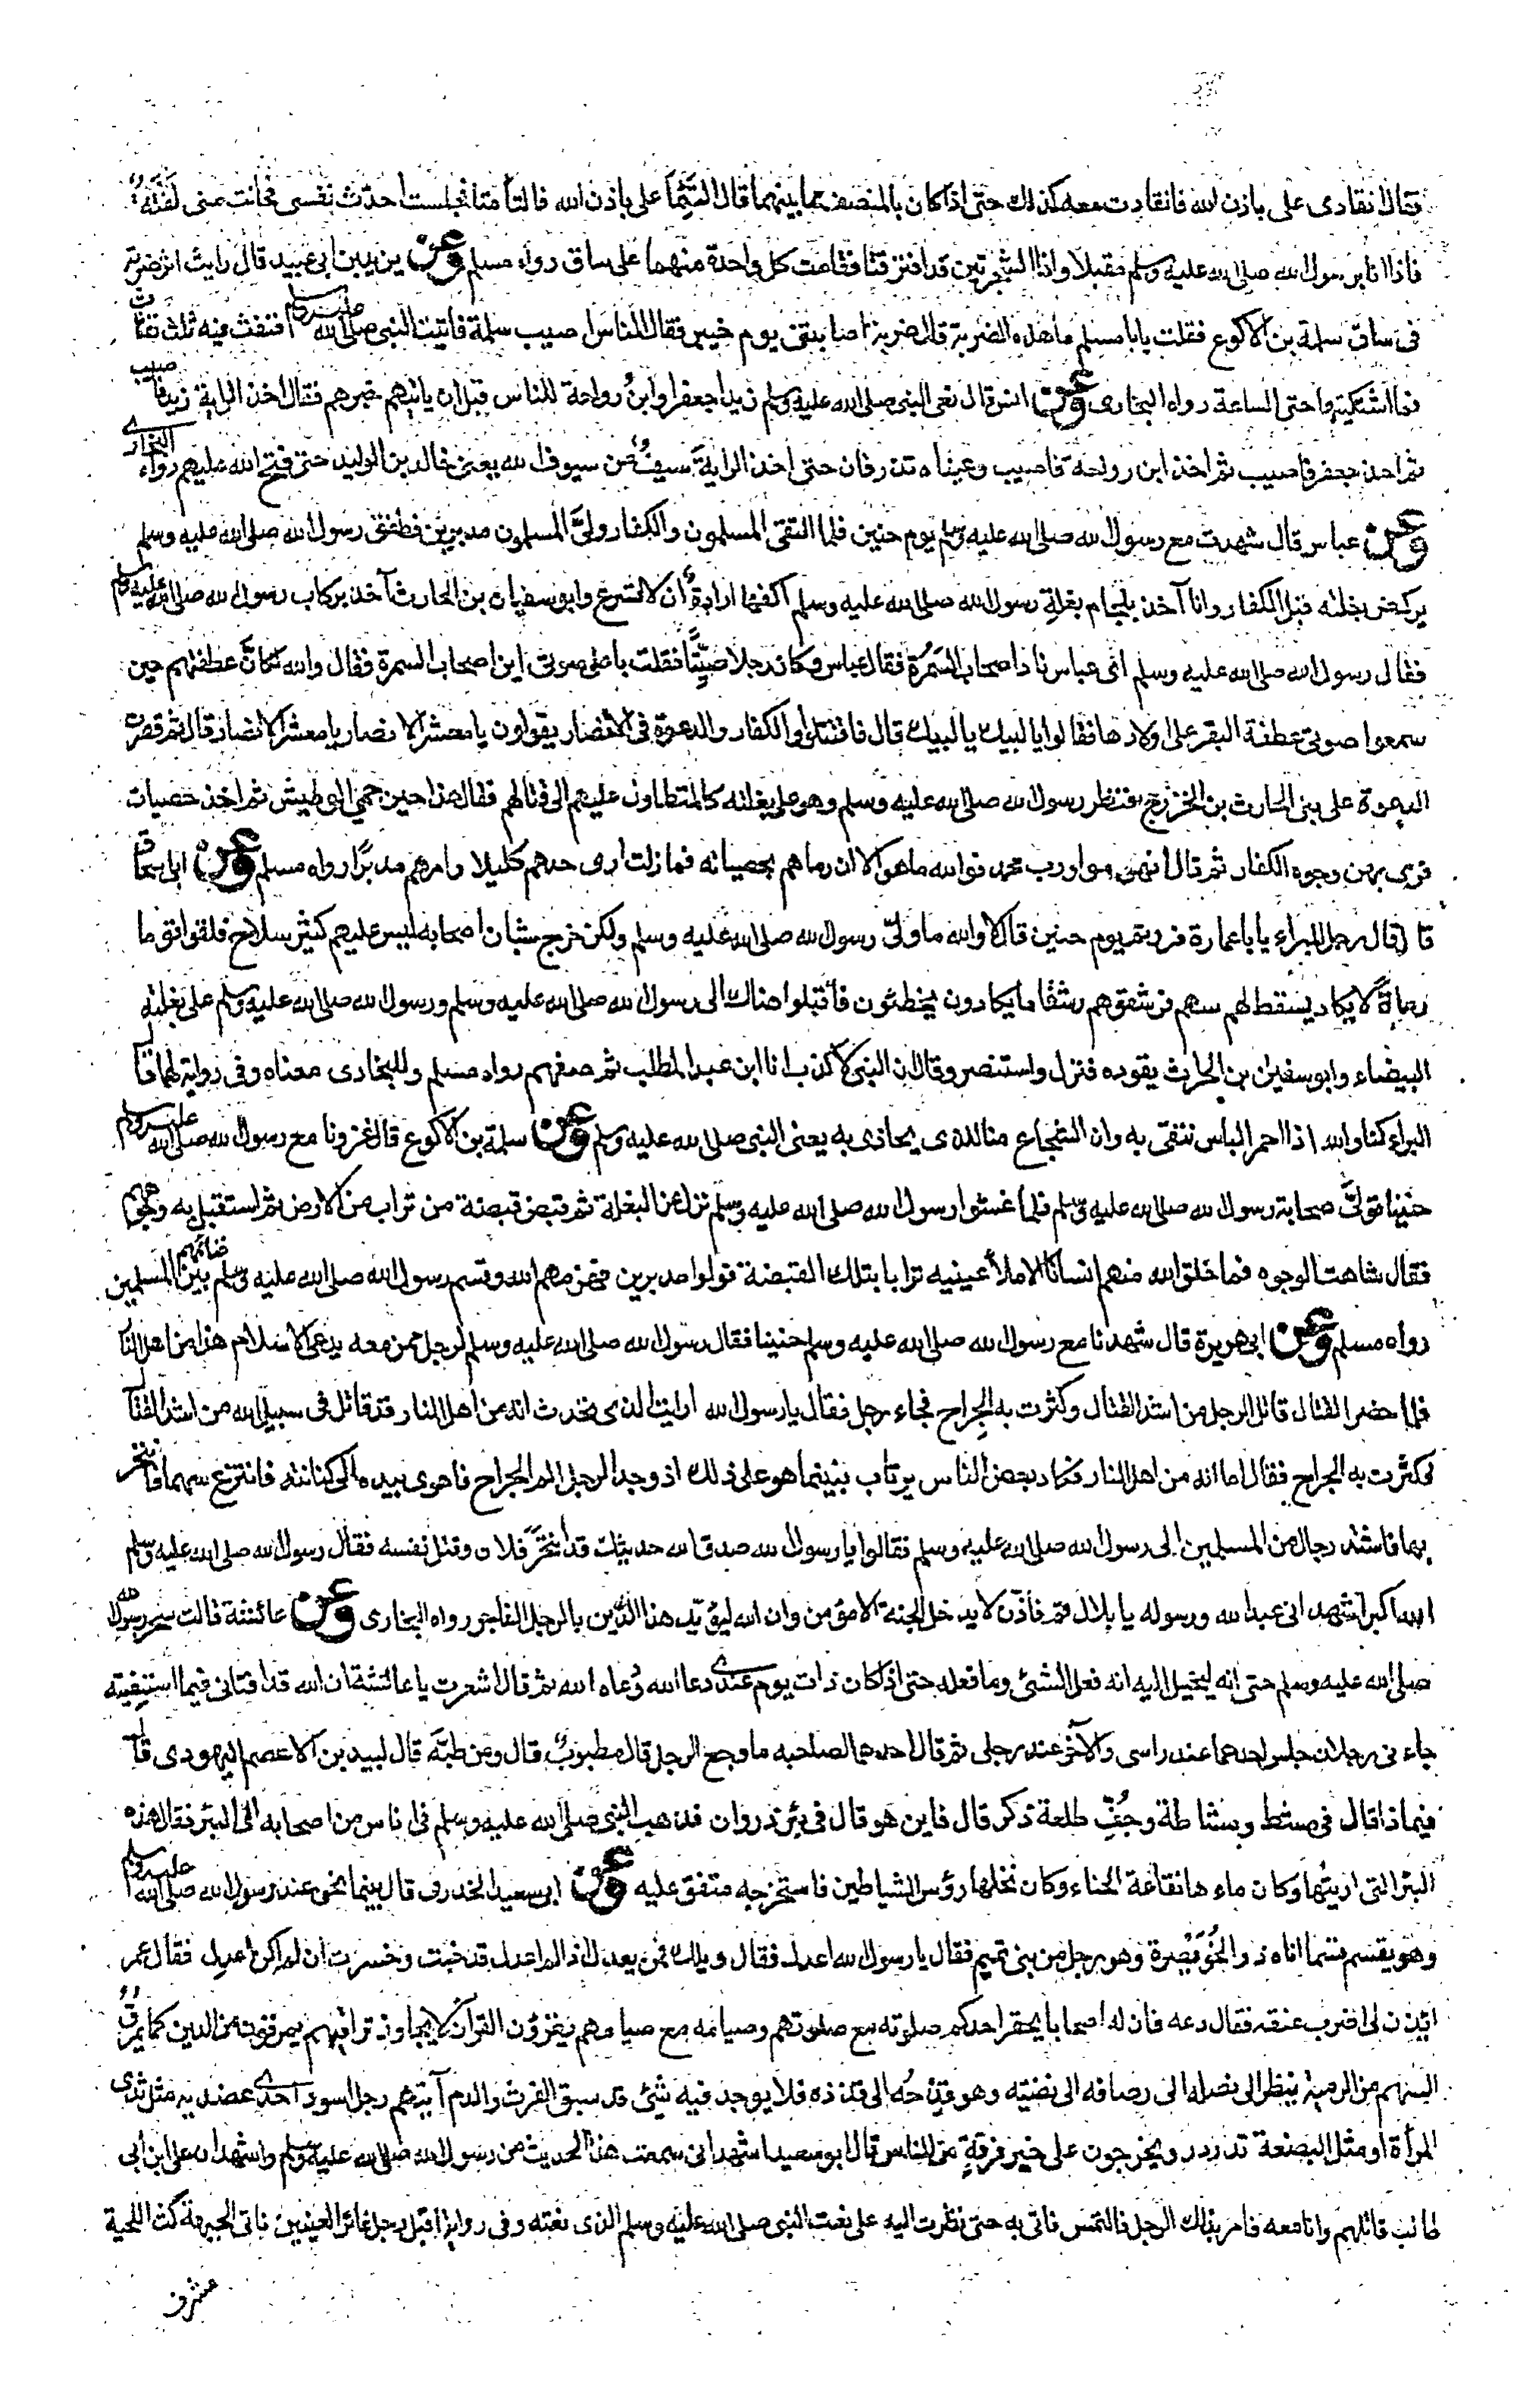 فقال انقادى على باذن الله فانقادت معه كذلك حتى اذا كان بالمنصف مما بينهما قال التئما على باذن الله فالتأمتا فجلست احدث نفسى فحانت منى لفتة
فاذا انا برسول الله صلى الله عليه وسلم مقبلا واذا الشجرتين قد افترقتا فقامت كل واحدة منهما على ساق رواه مسلم وعن يزيد بن ابى عبيد قال رايت اثر ضربة
فى ساق سلمة بن الاكوع فقلت يا با مسلم ما هذه الضربة قال ضربة اصابتنى يوم خيبر فقال الناس اصيب سلمة فاتيت النبى صلى الله عليه وسلم فنفث فيه ثلث نفثات
فما اشتكيتها حتى الساعة رواه البخارى وعن انس قال نعى النبى صلى الله عليه وسلم زيدا وجعفرا وابن رواحة للناس قبل ان ياتيهم خبرهم فقال اخذ الراية زيد فاصيب
ثم اخذ جعفر فاصيب ثم اخذ ابن رواحة فاصيب وعيناه تذرفان حتى اخذ الراية سيف من سيوف الله يعنى خالد بن الوليد حتى فتح الله عليهم رواه البخارى
وعن عباس قال شهدت مع رسول الله صلى الله عليه وسلم يوم حنين فلما التقى المسلمون والكفار ولى المسلمون مدبرين فطفق رسول الله صلى الله عليه وسلم
يركض بغلته قبل الكفار وانا آخذ بلجام بغلة رسول الله صلى الله عليه وسلم اكفها ارادة أن لا تسرع وابو سفيان بن الحارث آخذ بركاب رسول الله صلى الله عليه وسلم
فقال رسول الله صلى الله عليه وسلم اى عباس ناد اصحاب السمرة فقال عباس وكان رجلا صيتا فقلت باعلى صوتى اين اصحاب السمرة فقال والله لكان عطفتهم حين
سمعوا صوتى عطفة البقر على اولادها فقالوا يا لبيك يا لبيك قال فاقتتلوا والكفار والدعوة فى الانصار يقولون يا معشر الانصار يا معشر الانصار قال ثم قصرت
الدعوة على بنى الحارث بن الخزرج فنظر رسول الله صلى الله عليه وسلم وهو على بغلته كالمتطاول عليهم الى قتالهم فقال هذا حين حمي الوطيس ثم اخذ حصيات
فرمى بهن وجوه الكفار ثم قال انهزموا ورب محمد فوالله ما هو الا ان رماهم بحصياته فما زلت ارى حدهم كليلا وامرهم مدبرا رواه مسلم وعن ابى اسحاق
قال قال رجل للبراء يا با عمارة فررتم يوم حنين قال لا والله ما ولى رسول الله صلى الله عليه وسلم ولكن خرج شبان اصحابه ليس عليهم كثير سلاح فلقوا قوما
رماة لا يكاد يسقط لهم سهم فرشقوهم رشقا ما يكادون يخطئون فاقبلوا هناك الى رسول الله صلى الله عليه وسلم ورسول الله صلى الله عليه وسلم على بغلته
البيضاء وابو سفين بن الحرث يقوده فنزل واستنصر وقال انا النبى لا كذب انا ابن عبد المطلب ثم صفهم رواه مسلم وللبخارى معناه وفى رواية لهما قال
البراء كنا والله اذا احمر الباس نتقى به وان الشجاع منا للذى يحاذى به يعنى النبى صلى الله عليه وسلم وعن سلمة بن الاكوع قال غزونا مع رسول الله صلى الله عليه وسلم
حنينا فولى صحابة رسول الله صلى الله عليه وسلم فلما غشوا رسول الله صلى الله عليه وسلم نزل عن البغلة ثم قبض قبضة من تراب من الارض ثم استقبل به وجوههم
فقال شاهت الوجوه فما خلق الله منهم انسانا الا ملأ عينيه ترابا بتلك القبضة فولوا مدبرين فهزمهم الله وقسم رسول الله صلى الله عليه وسلم غنائمهم بين المسلمين
رواه مسلم وعن ابى هريرة قال شهدنا مع رسول الله صلى الله عليه وسلم حنينا فقال رسول الله صلى الله عليه وسلم لرجل ممن معه يدعى الاسلام هذا من اهل النار
فلما حضر القتال قاتل الرجل من اشد القتال وكثرت به الجراح فجاء رجل فقال يا رسول الله ارايت الذى تحدث انه من اهل النار قد قاتل فى سبيل الله من اشد القتال
فكثرت به الجراح فقال اما انه من اهل النار فكاد بعض الناس يرتاب فبينما هو على ذلك اذ وجد الرجل الم الجراح فاهوى بيده الى كنانته فانتزع سهما فانتحر
بها فاشتد رجال من المسلمين الى رسول الله صلى الله عليه وسلم فقالوا يا رسول الله صدق الله حديثك قد انتحر فلان وقتل نفسه فقال رسول الله صلى الله عليه وسلم
الله اكبر اشهد انى عبد الله ورسوله يا بلال قم فاذن لا يدخل الجنة الا مؤمن وان الله ليؤيد هذا الدين بالرجل الفاجر رواه البخارى وعن عائشة قالت سحر رسول الله
صلى الله عليه وسلم حتى انه ليخيل اليه انه فعل الشئ وما فعله حتى اذا كان ذات يوم عندى دعا الله ودعاه الله ثم قال اشعرت يا عائشة ان الله قد افتانى فيما استفتيته
جاءنى رجلان جلس احدهما عند راسى والآخر عند رجلى ثم قال احدهما لصاحبه ما وجع الرجل قال مطبوب قال ومن طبه قال لبيد بن الاعصم اليهودى قال
فيما ذا قال فى مشط ومشاطة وجف طلعة ذكر قال فاين هو قال فى بئر ذروان فذهب النبى صلى الله عليه وسلم فى اناس من اصحابه الى البئر فقال هذه
البئر التى اريتها وكان ماءها نقاعة الحناء وكان نخلها رؤس الشياطين فاستخرجه متفق عليه وعن ابى سعيد الخدرى قال بينما نحن عند رسول الله صلى الله عليه وسلم
وهو يقسم قسما اتاه ذو الخويصرة وهو رجل من بنى تميم فقال يا رسول الله اعدل فقال ويلك فمن يعدل اذا لم اعدل قد خبت وخسرت ان لم اكن اعدل فقال عمر
ائذن لى اضرب عنقه فقال دعه فان له اصحابا يحقر احدكم صلوته مع صلوتهم وصيامه مع صيامهم يقرؤن القرآن لا يجاوز تراقيهم يمرقون من الدين كما يمرق
السهم من الرمية ينظر الى نصله الى رصافه الى نضيه وهو قدحه الى قذذه فلا يوجد فيه شئ قد سبق الفرث والدم آيتهم رجل اسود احدى عضديه مثل ثدى
المرأة او مثل البضعة تدردر ويخرجون على خير فرقة من الناس قال ابو سعيد اشهد انى سمعت هذا الحديث من رسول الله صلى الله عليه وسلم واشهد ان على ابن ابى
طالب قاتلهم وانا معه فامر بذلك الرجل فالتمس فاتى به حتى نظرت اليه على نعت النبى صلى الله عليه وسلم الذى نعته وفى رواية اقبل رجل غائر العينين ناتى الجبهة كث اللحية
مشرف